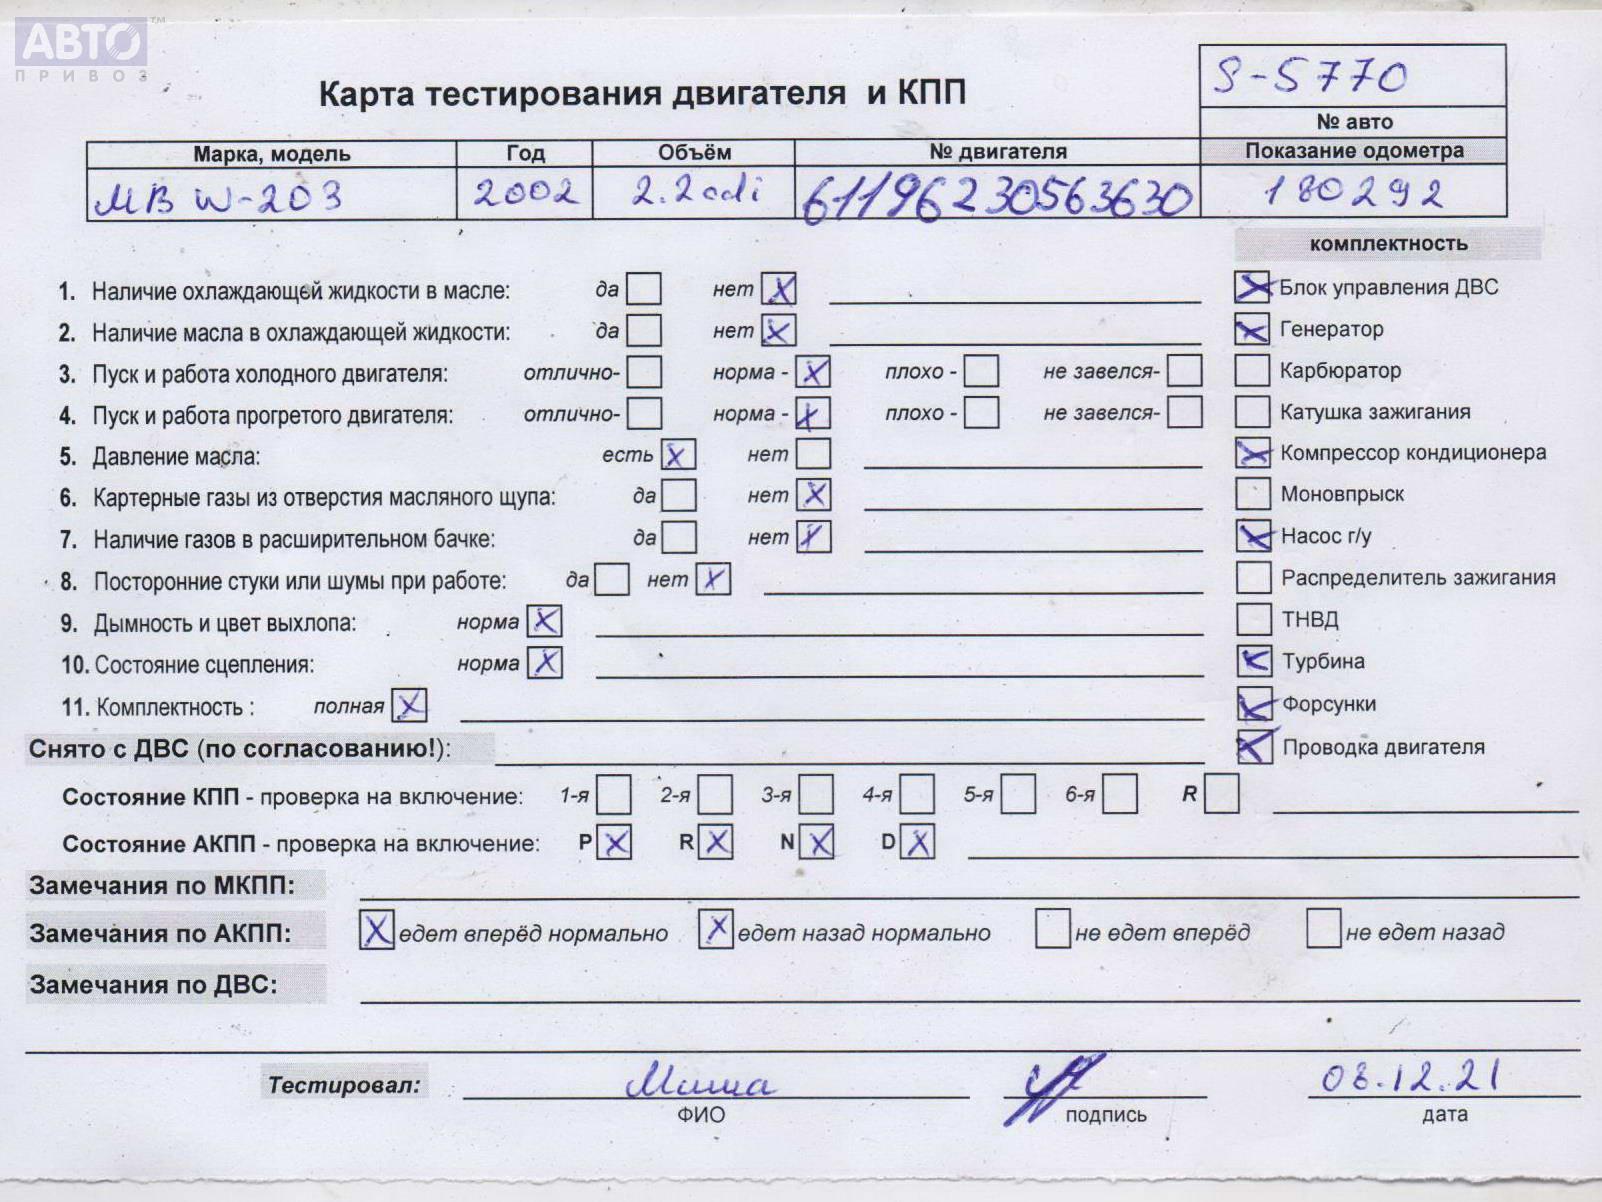 АВТО™
ПРИВОЗ
S-5770
Карта тестирования двигателя и КПП
№ авто
Марка, модель Год Объём № двигателя Показание одометра
MB W-203 2002 2.2 cdi 61196230563630 180292
комплектность
1. Наличие охлаждающей жидкости в масле: да нет X Блок управления ДВС X
2. Наличие масла в охлаждающей жидкости: да нет X Генератор X
3. Пуск и работа холодного двигателя: отлично- норма - X плохо - не завелся- Карбюратор
4. Пуск и работа прогретого двигателя: отлично- норма - X плохо - не завелся- Катушка зажигания
5. Давление масла: есть X нет X Компрессор кондиционера
6. Картерные газы из отверстия масляного щупа: да нет X Моновпрыск
7. Наличие газов в расширительном бачке: да нет X X Насос г/у
8. Посторонние стуки или шумы при работе: да нет X Распределитель зажигания
9. Дымность и цвет выхлопа: норма X ТНВД
10. Состояние сцепления: норма X X Турбина
11. Комплектность : полная X X Форсунки
Снято с ДВС (по согласованию!): X Проводка двигателя
Состояние КПП - проверка на включение: 1-я 2-я 3-я 4-я 5-я 6-я R
Состояние АКПП - проверка на включение: P X R X N X D X
Замечания по МКПП:
Замечания по АКПП: X едет вперёд нормально X едет назад нормально не едет вперёд не едет назад
Замечания по ДВС:
Тестировал: Миша 08.12.21
ФИО подпись дата